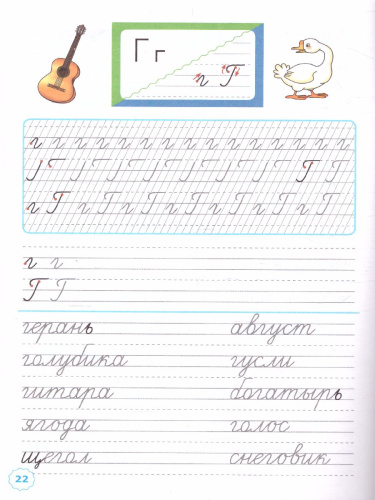 Г г
г Г
г г г г г г г г г г г г г г г
Г Г Г Г Г Г Г Г Г Г Г
г Г г Г г Г г Г г Г г Г г Г
г г
Г Г
герань август
голубика гусли
гитара богатырь
ягода голос
щегол снеговик
22